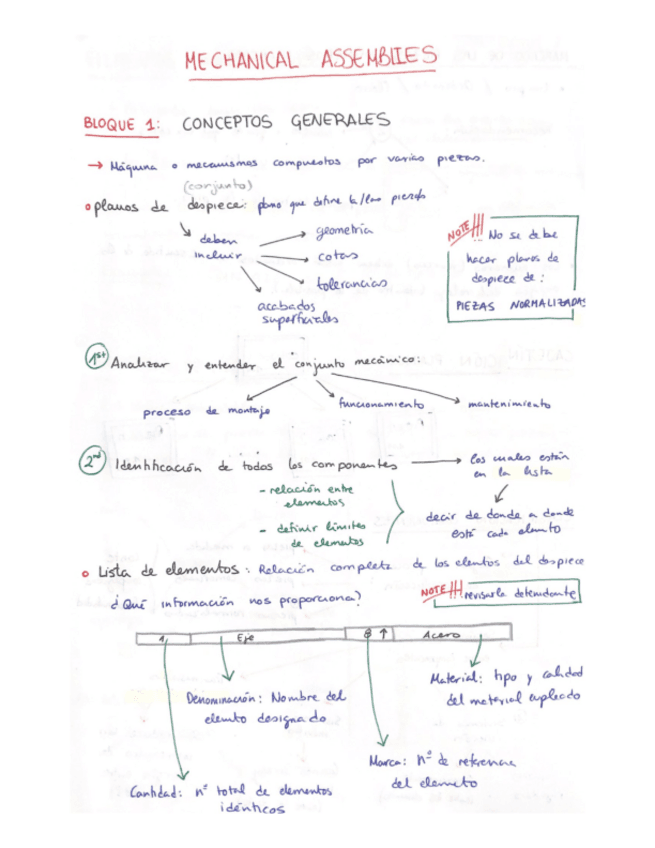 MECHANICAL ASSEMBLIES
BLOQUE 1: CONCEPTOS GENERALES
→ Máquina o mecanismos compuestos por varias piezas.
(conjunto)
planos de despiece: plano que define la/las piezas
deben incluir
geometría
cotas
tolerancias
acabados superficiales
NOTE!!! No se debe
hacer planos de
despiece de:
PIEZAS NORMALIZADAS
1st Analizar y entender el conjunto mecánico:
proceso de montaje
funcionamiento
mantenimiento
2nd Identificación de todos los componentes → los cuales están
en la lista
- relación entre
elementos
- definir límites
de elementos
decir de donde a donde
está cada elemento
Lista de elementos: Relación completa de los elentos del despiece
¿Qué información nos proporciona?
NOTE!!! revisarla detenidamente
1, Eje 8 ↑ Acero
Denominación: Nombre del
elemto designado
Material: tipo y calidad
del material empleado
Marca: nº de referencia
del elemeto
Cantidad: nº total de elementos
idénticos